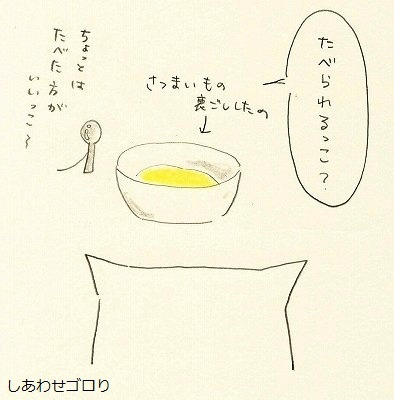 たべられるっこ?
さつまいもの
裏ごししたの
ちょっとは
たべた方が
いいっこ〜
しあわせゴロり